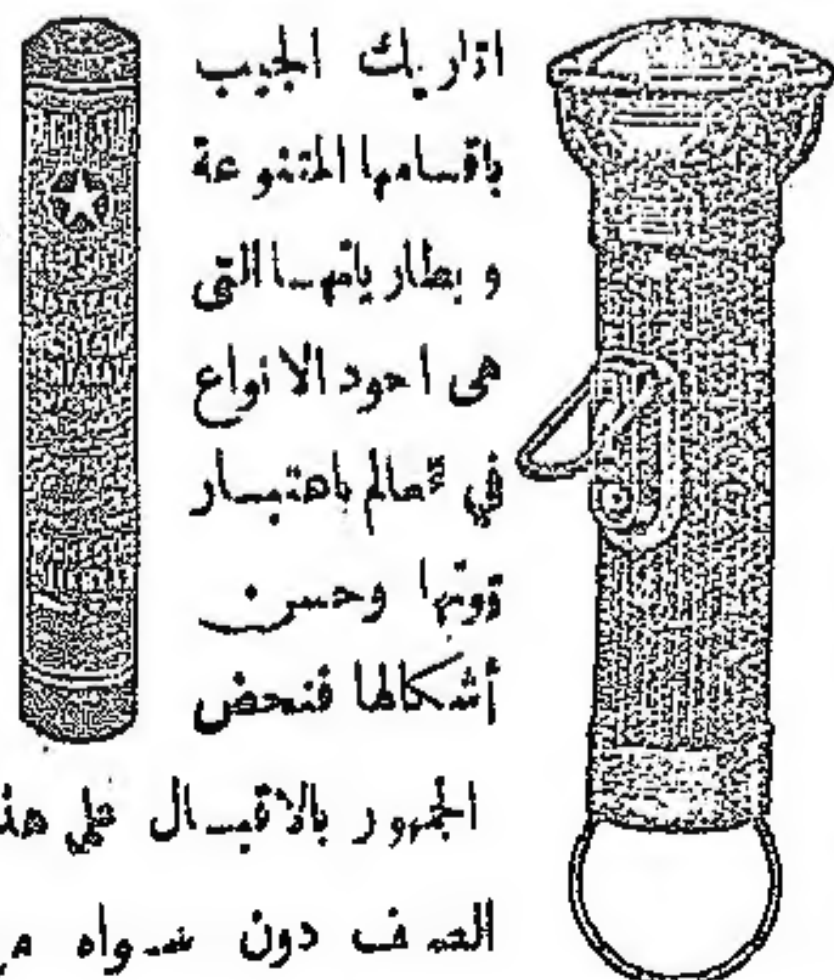 اتاريك الجيب
باقسامها المتنوعة
و بطارياتها التي
هي اجود الانواع
في العالم باعتبار
قوتها وحسن
أشكالها فنحض
الجمهور بالاقبال على هذ
الصنف دون سواه م